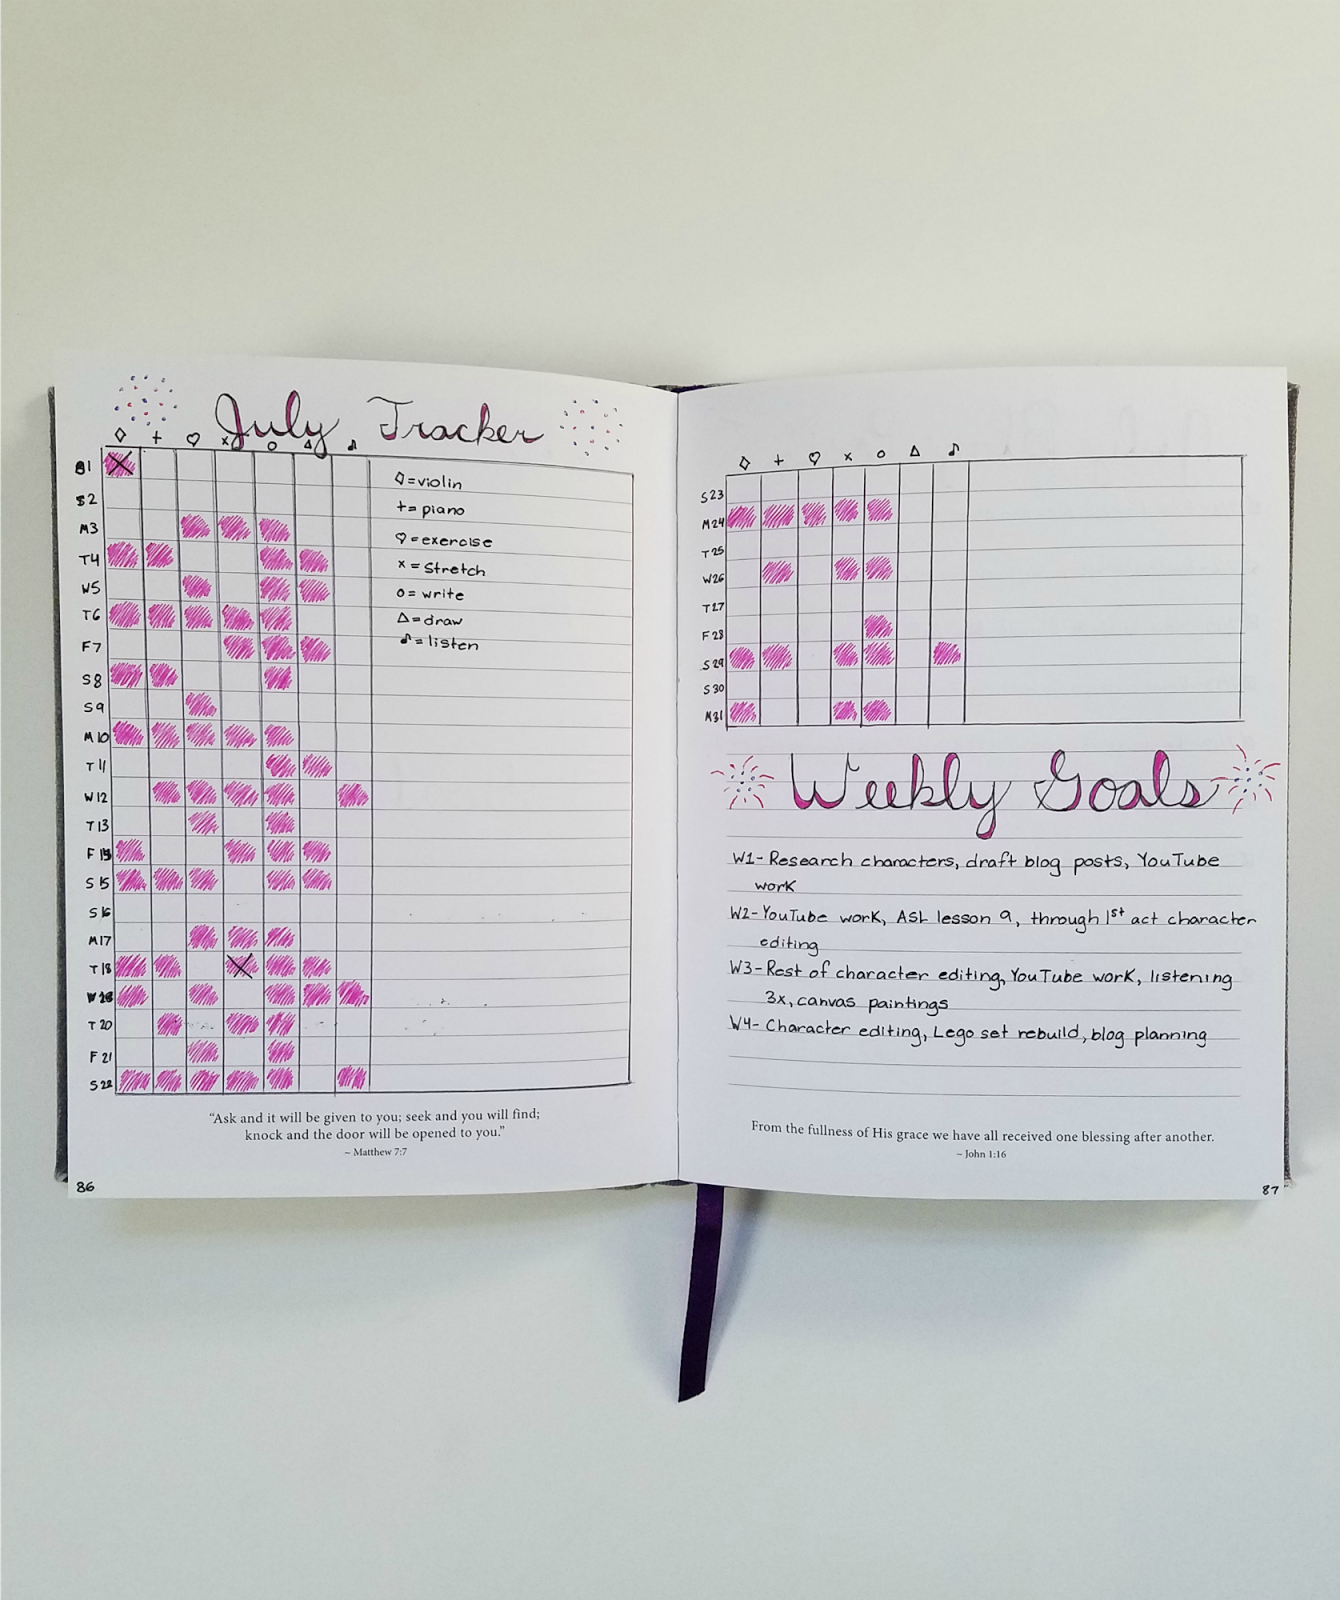 July Tracker
◇ + ♡ x o △ ♪
S1
S2
M3
T4
W5
T6
F7
S8
S9
M10
T11
W12
T13
F14
S15
S16
M17
T18
W19
T20
F21
S22
◇=violin
+= piano
♡=exercise
x = Stretch
o= write
△=draw
♪=listen
"Ask and it will be given to you; seek and you will find;
knock and the door will be opened to you."
~ Matthew 7:7
86
◇ + ♡ x o △ ♪
S23
M24
T25
W26
T27
F28
S29
S30
M31
Weekly Goals
W1- Research characters, draft blog posts, YouTube
work
W2-YouTube work, ASL lesson 9, through 1st act character
editing
W3-Rest of character editing, YouTube work, listening
3x, canvas paintings
W4- Character editing, Lego set rebuild, blog planning
From the fullness of His grace we have all received one blessing after another.
~ John 1:16
87